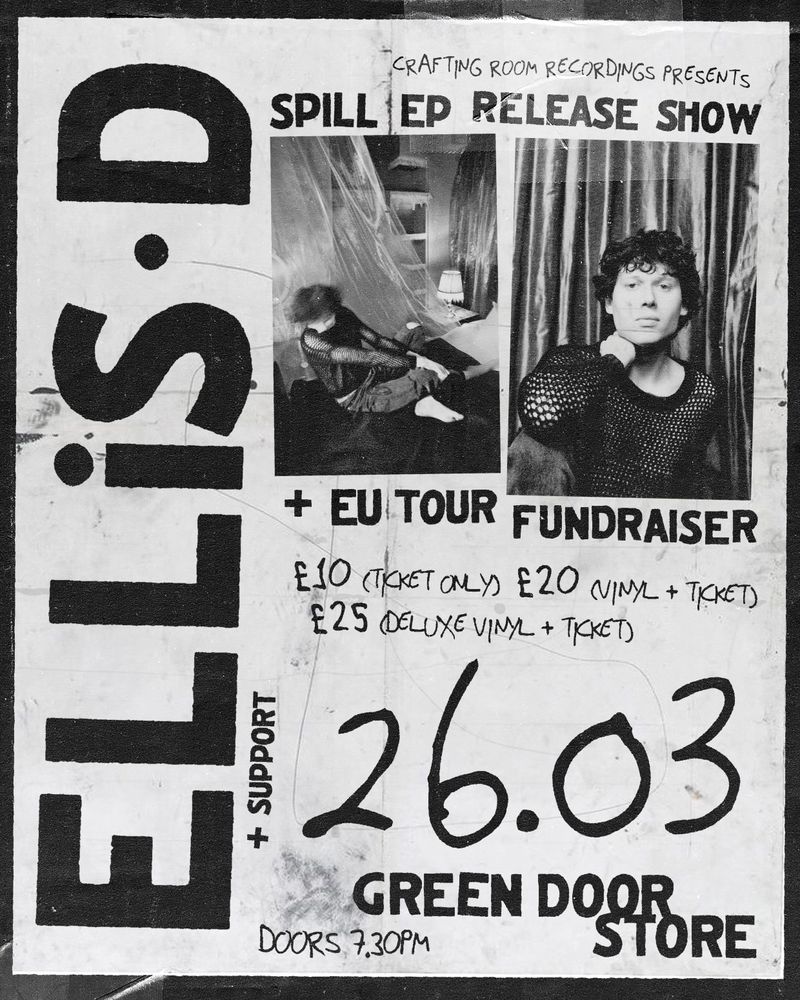 ELLiS·D
CRAFTING ROOM RECORDINGS PRESENTS
SPILL EP RELEASE SHOW
+ EU TOUR FUNDRAISER
£10 (TICKET ONLY) £20 (VINYL + TICKET)
£25 (DELUXE VINYL + TICKET)
+ SUPPORT
26.03
GREEN DOOR
STORE
DOORS 7.30PM